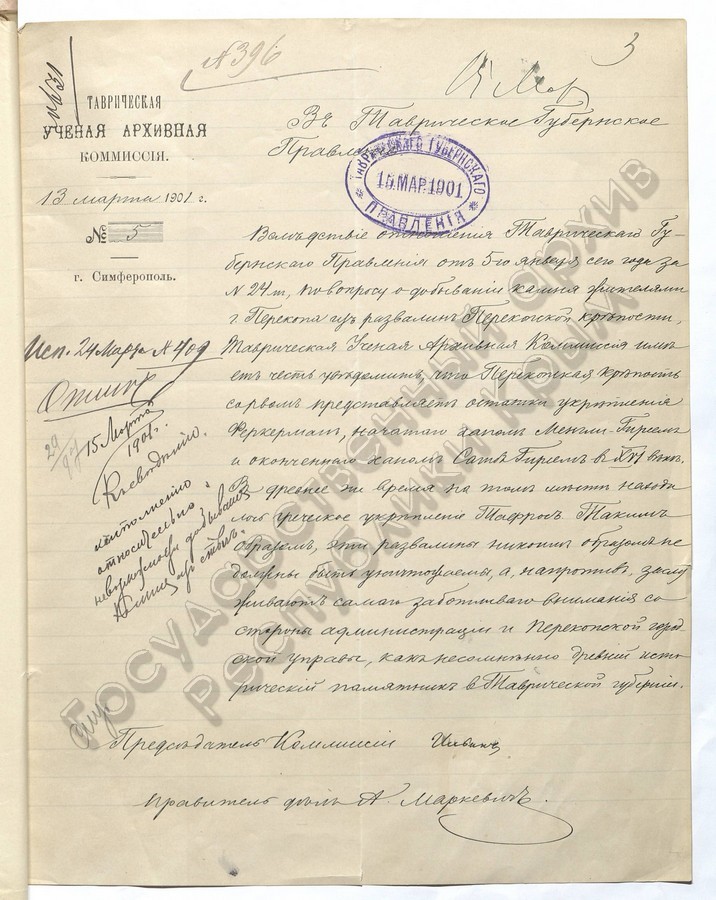 № 396
3
ТАВРИЧЕСКАЯ
УЧЕНАЯ АРХИВНАЯ
КОММИССІЯ.
13 марта 1901 г.
№ 5
г. Симферополь.
Въ Таврическое Губернское
Правле
ТАВРИЧЕСКАГО ГУБЕРНСКАГО
15 МАР. 1901
ПРАВЛЕНІЯ
Вслѣдствіе отношенія Таврическаго Гу-
бернскаго Правленія отъ 5го января сего года за
№ 24м, по вопросу о добываніи камня жителями
г. Перекопа изъ развалинъ Перекопской крѣпости,
Таврическая Ученая Архивная Коммиссія имѣ
етъ честь увѣдомить, что Перекопская крѣпость
со рвомъ представляетъ остатки укрѣпленія
Феркерман, начатаго ханомъ Менгли-Гиреемъ
и оконченнаго ханомъ Гиреемъ в XVI вѣкѣ.
В древнее же время на томъ мѣстѣ находи
лось греческое укрѣпленіе Тафросъ. Такимъ
образомъ, эти развалины никоимъ образомъ не
должны быть уничтожаемы, а, напротивъ, заслу
живаютъ самаго заботливаго вниманія со
стороны администраціи и Перекопской город
ской управы, какъ несомнѣнно древній исто
рическій памятникъ в Таврической губерніи.
Исп. 24 Марта № 409
15 Марта
1901 г.
Къ свѣдѣнію.
относительно
невозможности добыванія
Предсѣдатель Коммиссіи
Правитель дѣлъ А. Маркевичъ.
Государственный архив
Республики Крым